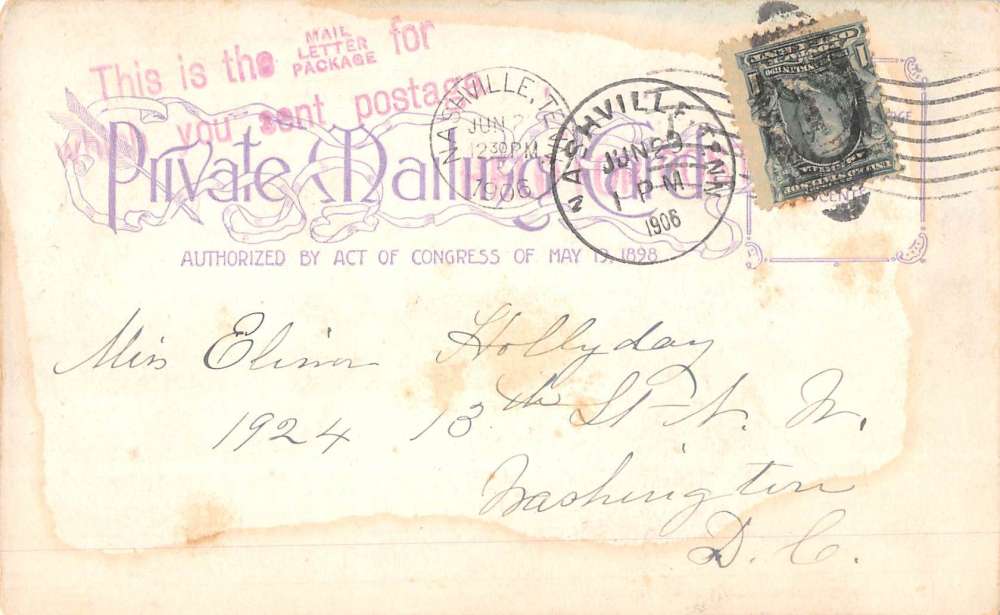 This is the MAIL LETTER PACKAGE for
you sent postage
Private Mailing Card
AUTHORIZED BY ACT OF CONGRESS OF MAY 19, 1898
NASHVILLE, TENN
JUN 2
12 30 PM
1906
NASHVILLE TENN
JUN 29
1 PM
1906
Miss Elinor Hollyday
1924 13th St N. W.
Washington
D. C.